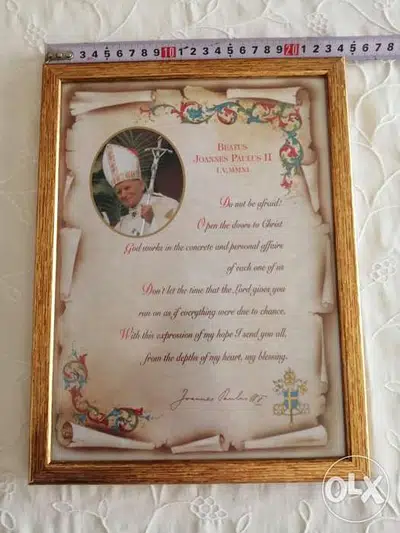 3 4 5 6 7 8 9 10 1 2 3 4 5 6 7 8 9 20 1 2 3 4 5 6 7 8
BEATUS
JOANNES PAULUS II
I.V.MMXI
Do not be afraid!
Open the doors to Christ
God works in the concrete and personal affairs
of each one of us
Don't let the time that the Lord gives you
run on as if everything were due to chance,
With this expression of my hope I send you all,
from the depths of my heart, my blessing.
Joannes Paulus II
OLX